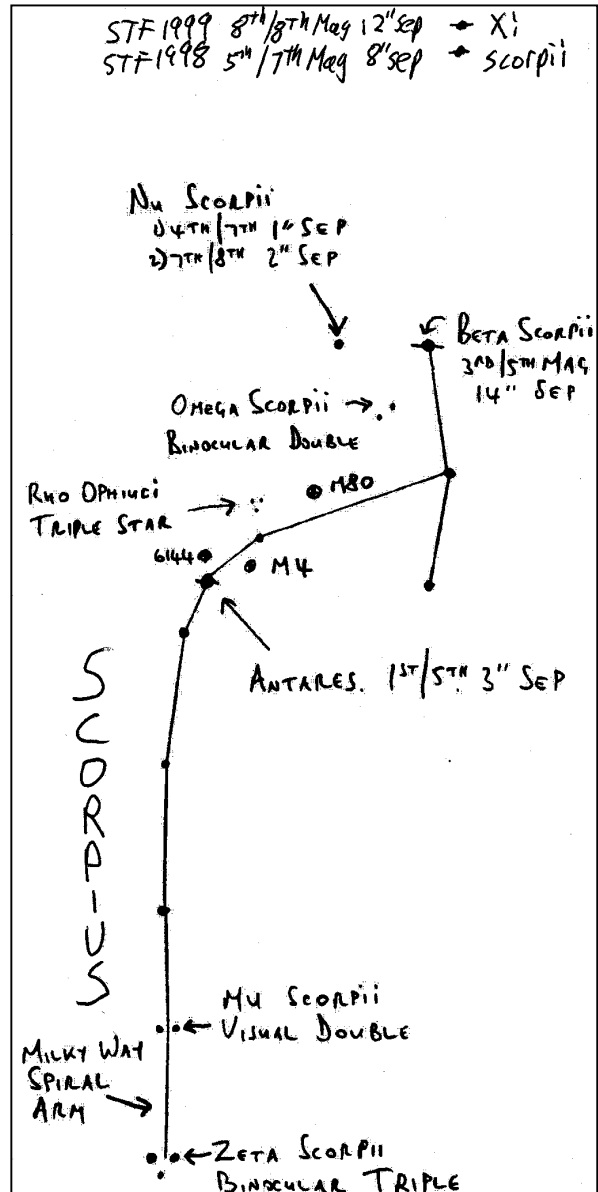 STF 1999 8th/8th Mag 12" sep Xi
STF 1998 5th/7th Mag 8" sep scorpii
Nu Scorpii
1) 4th/7th 1" Sep
2) 7th/8th 2" Sep
Beta Scorpii
3rd/5th Mag
14" Sep
Omega Scorpii
Binocular Double
M80
Rho Ophiuci
Triple Star
6144
M4
Antares. 1st/5th 3" Sep
SCORPIUS
Mu Scorpii
Visual Double
Milky Way
Spiral
Arm
Zeta Scorpii
Binocular Triple